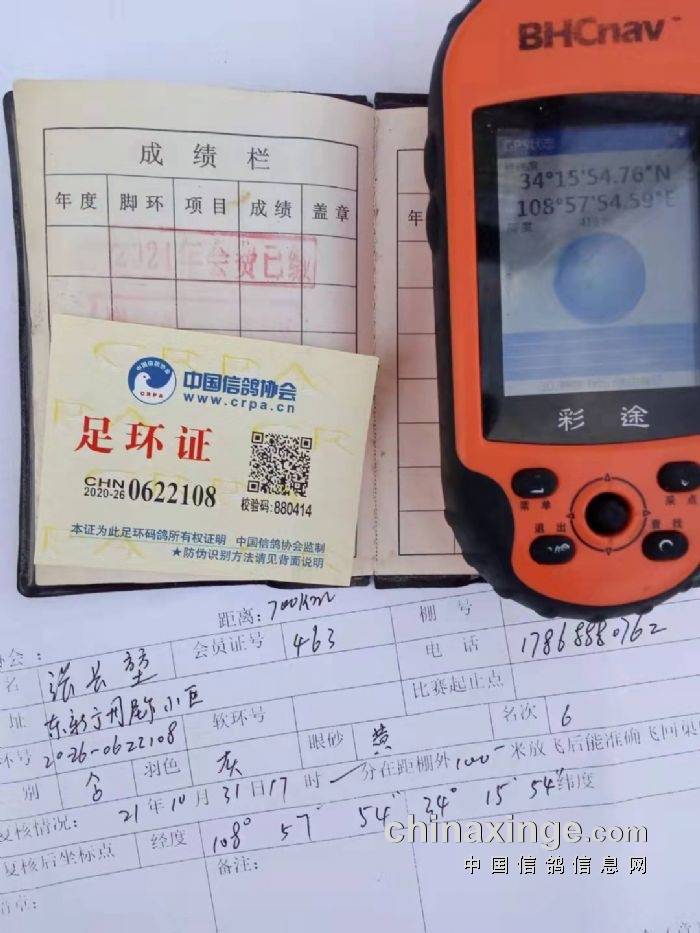 BHCnav
GPS状态
34°15'54.76"N
108°57'54.59"E
彩途
菜单
采点
退出
查找
成绩栏
年度 脚环 项目 成绩 盖章
年
2021年会费已缴
中国信鸽协会
www.crpa.cn
CRPA
足环证
CHN
2020-26 0622108
校验码:880414
本证为此足环码鸽所有权证明 中国信鸽协会监制
★防伪识别方法请见背面说明
距离:700Km 棚号
协会:
名 张长 会员证号 463 电话 17868880762
址 小区 比赛起止点
环号 2026-0622108 软环号
别 羽色 灰 眼砂 黄 名次 6
复核情况: 21年10月31日17时 分在距棚外1000米放飞后能准确飞回
复核后坐标点 经度 108° 57' 54" 34° 15' 54" 纬度
备注:
章:
chinaxinge.com
中国信鸽信息网